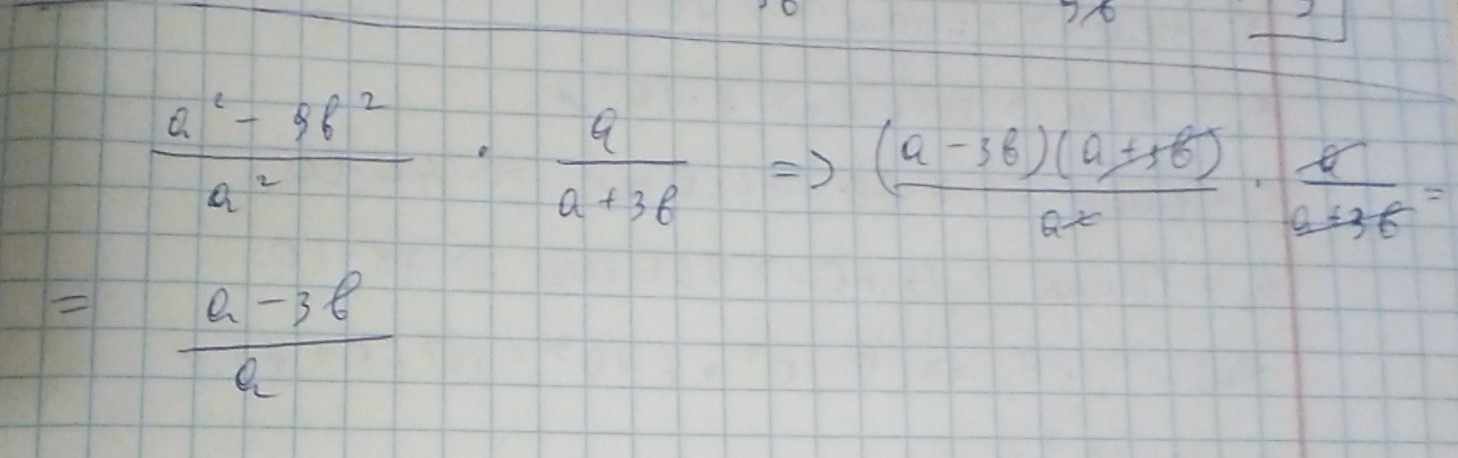 (a² - 9b²)/a² · a/(a+3b) => (a-3b)(a+3b)/a² · a/(a+3b) =
= (a-3b)/a